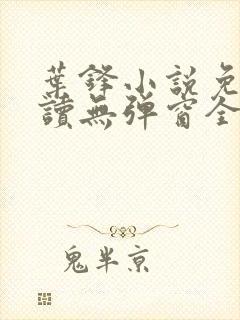 葉鋒小說免
讀無彈窗全
鬼半京